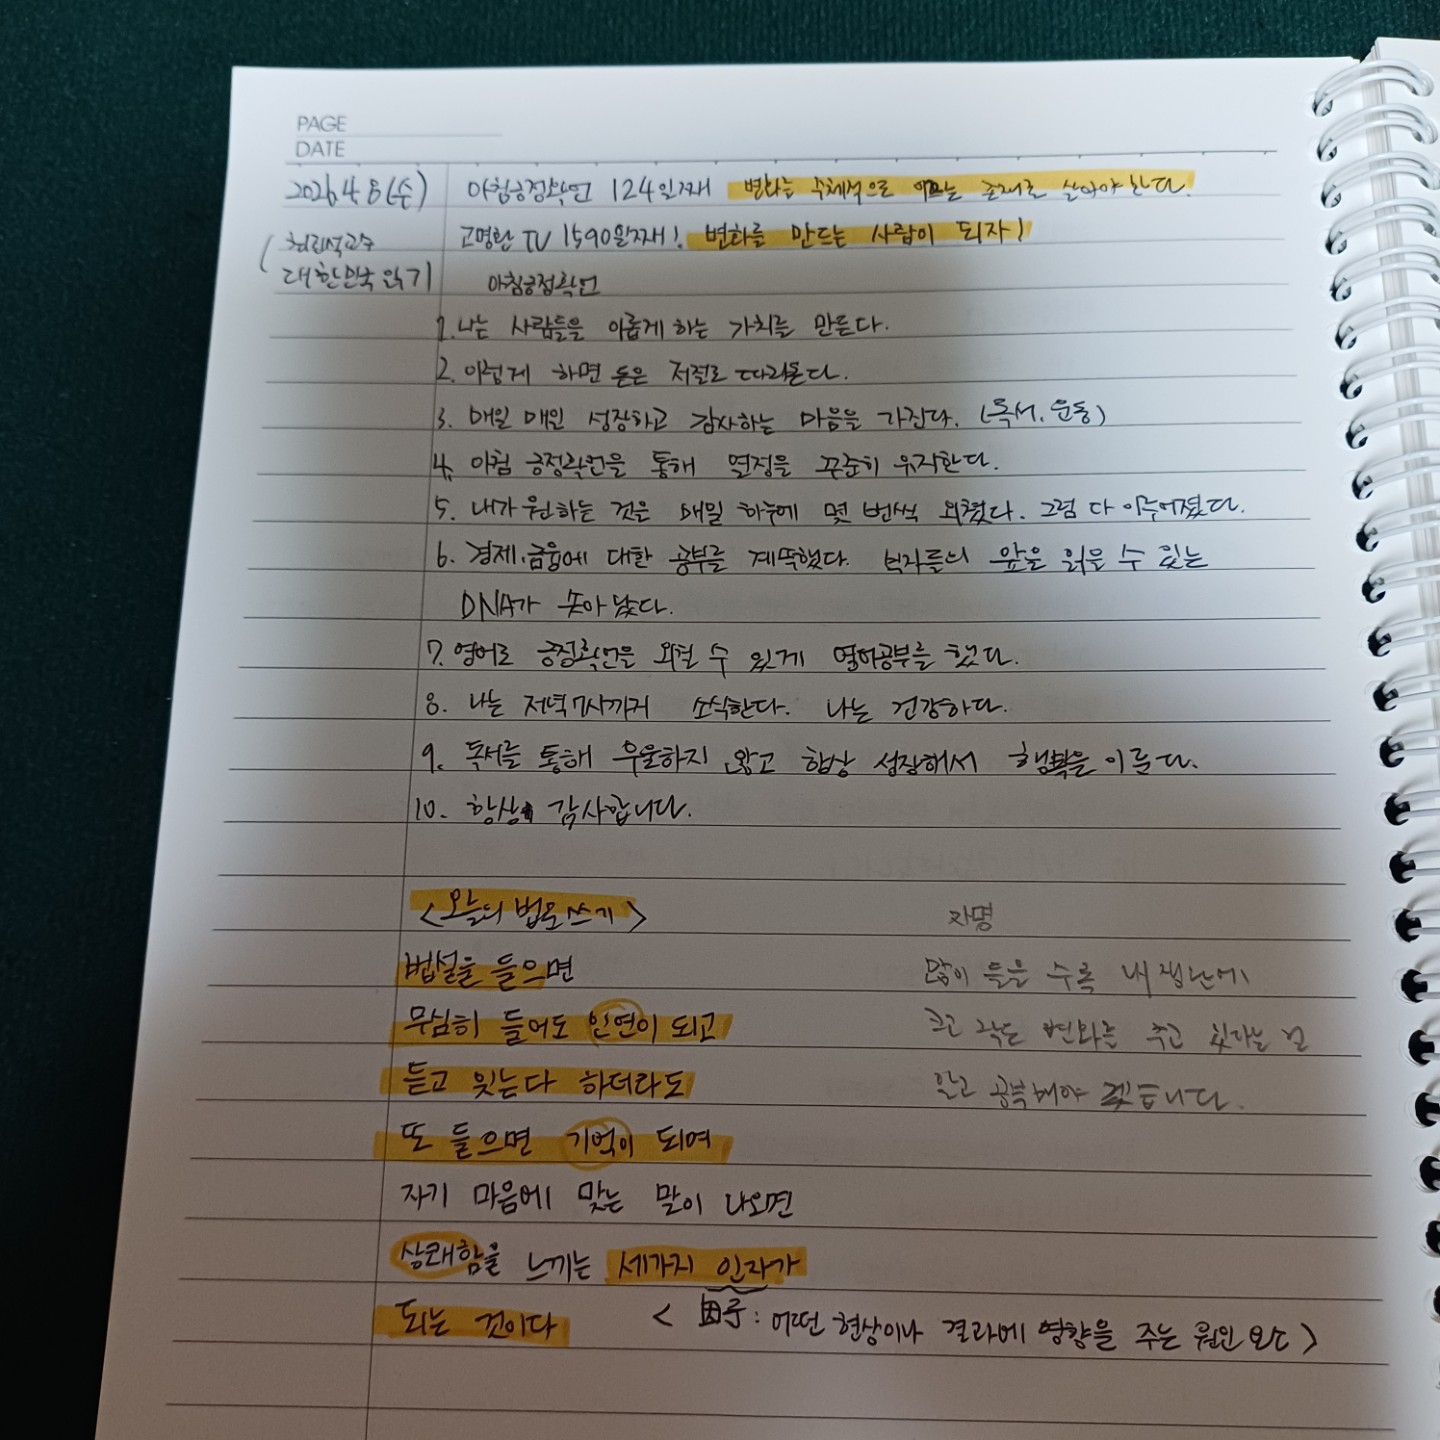 PAGE
DATE
2026.4.8(수) 아침긍정확언 124일째 변화는 주체적으로 이끄는 존재로 살아야 한다.
고명환 TV 1590일째! 변화를 만드는 사람이 되자!
대한민국 읽기 아침긍정확언
1. 나는 사람들을 이롭게 하는 가치를 만든다.
2. 이렇게 하면 돈은 저절로 따라온다.
3. 매일 매일 성장하고 감사하는 마음을 가진다. (독서, 운동)
4. 아침 긍정확언을 통해 열정을 꾸준히 유지한다.
5. 내가 원하는 것은 매일 하루에 몇 번씩 외쳤다. 그럼 다 이루어졌다.
6. 경제, 금융에 대한 공부를 계속했다. 부자들의 앞을 읽을 수 있는
DNA가 솟아 났다.
7. 영어로 긍정확언을 외칠 수 있게 영어공부를 했다.
8. 나는 저녁 7시까지 소식한다. 나는 건강하다.
9. 독서를 통해 우울하지 않고 항상 성장해서 행복을 이룬다.
10. 항상 감사합니다.
<오늘의 법문 쓰기> 자명
법설을 들으면 많이 들을 수록 내 생난에
무심히 들어도 인연이 되고 크고 작은 변화를 주고 있다는 걸
듣고 잊는다 하더라도 알고 공부해야 겠습니다.
또 들으면 기억이 되여
자기 마음에 맞는 말이 나오면
상쾌함을 느끼는 세가지 인자가
되는 것이다 <因子: 어떤 현상이나 결과에 영향을 주는 원인 요소>